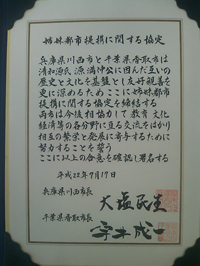 姉妹都市提携に関する協定
兵庫県川西市と千葉県香取市は
清和源氏 源満仲公に因んだ互いの
歴史と文化を基盤とし友好親善を
更に深めるためここに姉妹都市
提携に関する協定を締結する
両市は今後相協力して教育 文化
経済等の各分野に亘る交流をはかり
相互の繁栄と発展に寄予するために
努力することを誓う
ここに以上の合意を確認し署名する
平成22年7月17日
兵庫県川西市長
大塩民生
千葉県香取市長
宇井成一